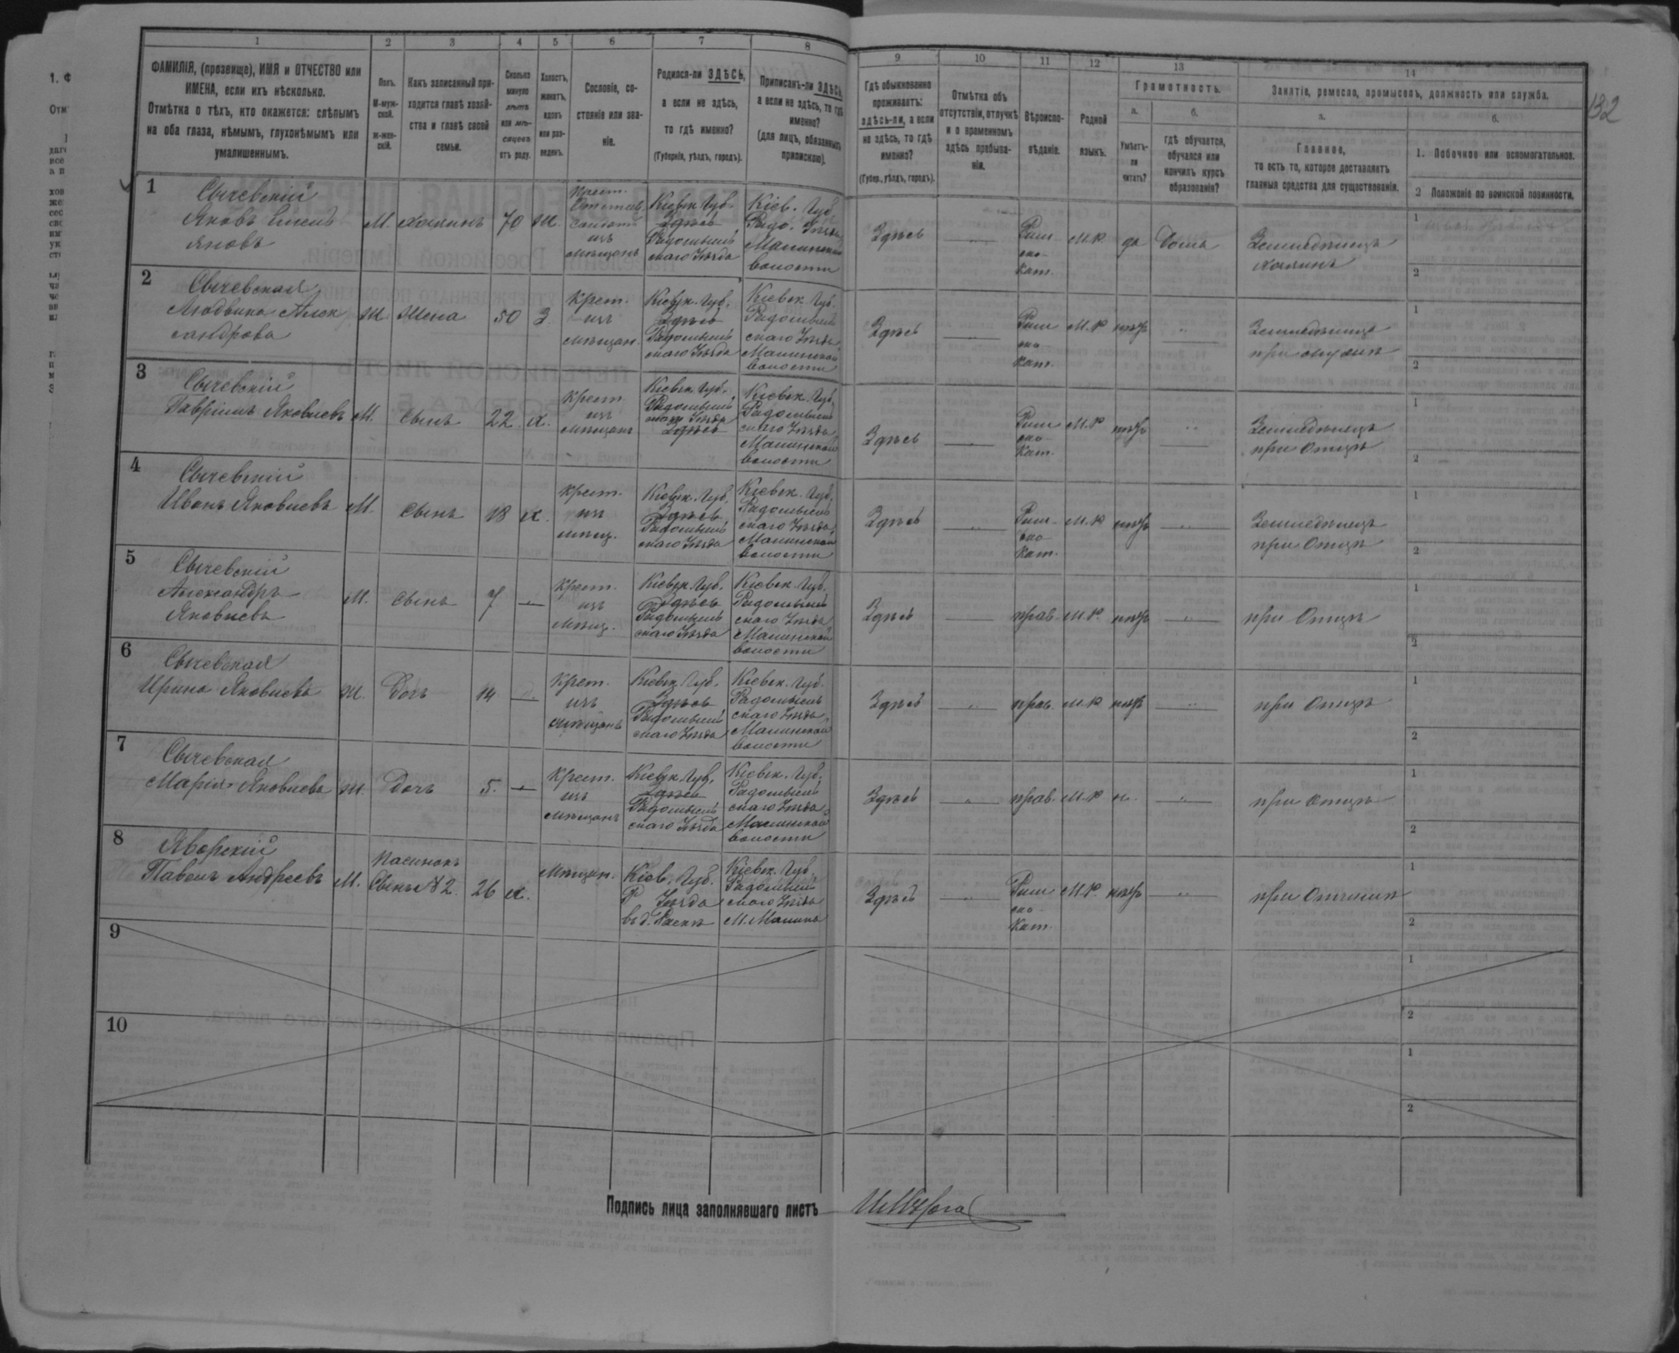 132
1 2 3 4 5 6 7 8 9 10 11 12 13 14
ФАМИЛІЯ, (прозвище), ИМЯ и ОТЧЕСТВО или
ИМЕНА, если ихъ нѣсколько.
Отмѣтка о тѣхъ, кто окажется: слѣпымъ
на оба глаза, нѣмымъ, глухонѣмымъ или
умалишеннымъ.
Полъ.
М-муж-
ской.
ж-жен-
скій.
Какъ записанный при-
ходится главѣ хозяй-
ства и главѣ своей
семьи.
Сколько
минуло
лѣтъ
или мѣ-
сяцевъ
отъ роду.
Холостъ,
женатъ,
вдовъ
или раз-
веденъ.
Сословіе, со-
стояніе или зва-
ніе.
Родился-ли ЗДѢСЬ,
а если не здѣсь,
то гдѣ именно?
(Губернія, уѣздъ, городъ).
Приписанъ-ли ЗДѢСЬ,
а если не здѣсь, то гдѣ
именно?
(для лицъ, обязанныхъ
припискою).
Гдѣ обыкновенно
проживаетъ:
здѣсь-ли, а если
не здѣсь, то гдѣ
именно?
(Губер., уѣздъ, городъ).
Отмѣтка объ
отсутствіи, отлучкѣ
и о временномъ
здѣсь пребыва-
ніи.
Вѣроиспо-
вѣданіе.
Родной
языкъ.
Грамотность.
а.
Умѣетъ-
ли
читать?
б.
гдѣ обучается,
обучался или
кончилъ курсъ
образованія?
Занятіе, ремесло, промыселъ, должность или служба.
а.
Главное,
то есть то, которое доставляетъ
главныя средства для существованія.
б.
1. Побочное или вспомогательное.
2 Положеніе по воинской повинности.
1
Сычевскій
Яковъ
М. хозяинъ 70 ж.
изъ
мѣщанъ
Кіевск. Губ.
Здѣсь
Радомысль
скаго Уѣзда
Кіев. Губ.
Радо. Уѣзда
Малинской
волости
Здѣсь
Рим
ско-
Кат.
М.Р да Дома
Земледѣлецъ
хозяинъ
1
2
2
Сычевская
Людвика Алек
сандрова
Ж Жена 50 З
Крест.
изъ
мѣщан.
Кіевск. Губ.
Здѣсь
Радомысль
скаго Уѣзда
Кіевск. Губ.
Радомысль
скаго Уѣзда
Малинской
волости
Здѣсь
Рим
ско-
Кат.
М.Р нѣтъ
Земледѣлица
при мужѣ
1
2
3
Сычевскій
Гавріилъ Яковлевъ
М. Сынъ 22 х.
Крест.
изъ
мѣщанъ
Кіевск. Губ.
Радомысль
скаго Уѣзда
Здѣсь
Кіевск. Губ.
Радомысль
скаго Уѣзда
Малинской
волости
Здѣсь
Рим
ско-
Кат.
М.Р нѣтъ
Земледѣлецъ
при Отцѣ
1
2
4
Сычевскій
Иванъ Яковлевъ
М. Сынъ 18 х.
Крест.
изъ
мѣщ.
Кіевск. Губ.
Здѣсь
Радомысль
скаго Уѣзда
Кіевск. Губ.
Радомысль
скаго Уѣзда
Малинской
волости
Здѣсь
Рим
ско-
Кат.
М.Р нѣтъ
Земледѣлецъ
при Отцѣ
1
2
5
Сычевскій
Александръ
Яковлевъ
М. Сынъ 7 —
Крест.
изъ
Мѣщ.
Кіевск. Губ.
Здѣсь
Радомысль
скаго Уѣзда
Кіевск. Губ.
Радомысль
скаго Уѣзда
Малинской
волости
Здѣсь
прав. М.Р. нѣтъ
при Отцѣ
1
2
6
Сычевская
Ирина Яковлева
Ж. Дочь 14 —
Крест.
изъ
мѣщанъ
Кіевск. Губ.
Здѣсь
Радомысль
скаго Уѣзда
Кіевск. Губ.
Радомысль
скаго Уѣзда
Малинской
волости
Здѣсь
прав. М.Р нѣтъ
при Отцѣ
1
2
7
Сычевская
Марія Яковлева
Ж. Дочь 5. —
Крест.
изъ
мѣщанъ
Кіевск. Губ.
Здѣсь
Радомысль
скаго Уѣзда
Кіевск. Губ.
Радомысль
скаго Уѣзда
Малинской
волости
Здѣсь
прав. М.Р н.
при Отцѣ
1
2
8
Яворскій
Павелъ Андреевъ
М.
Пасынокъ
Сынъ №2. 26 х.
Мѣщан.
Кіев. Губ.
Р Уѣзда
Кіевск. Губ.
Радомысль
скаго Уѣзда
М. Малина
Здѣсь
Рим
ско-
Кат.
М.Р нѣтъ
при Отчимѣ
1
2
9
1
2
10
1
2
Подпись лица заполнявшаго листъ